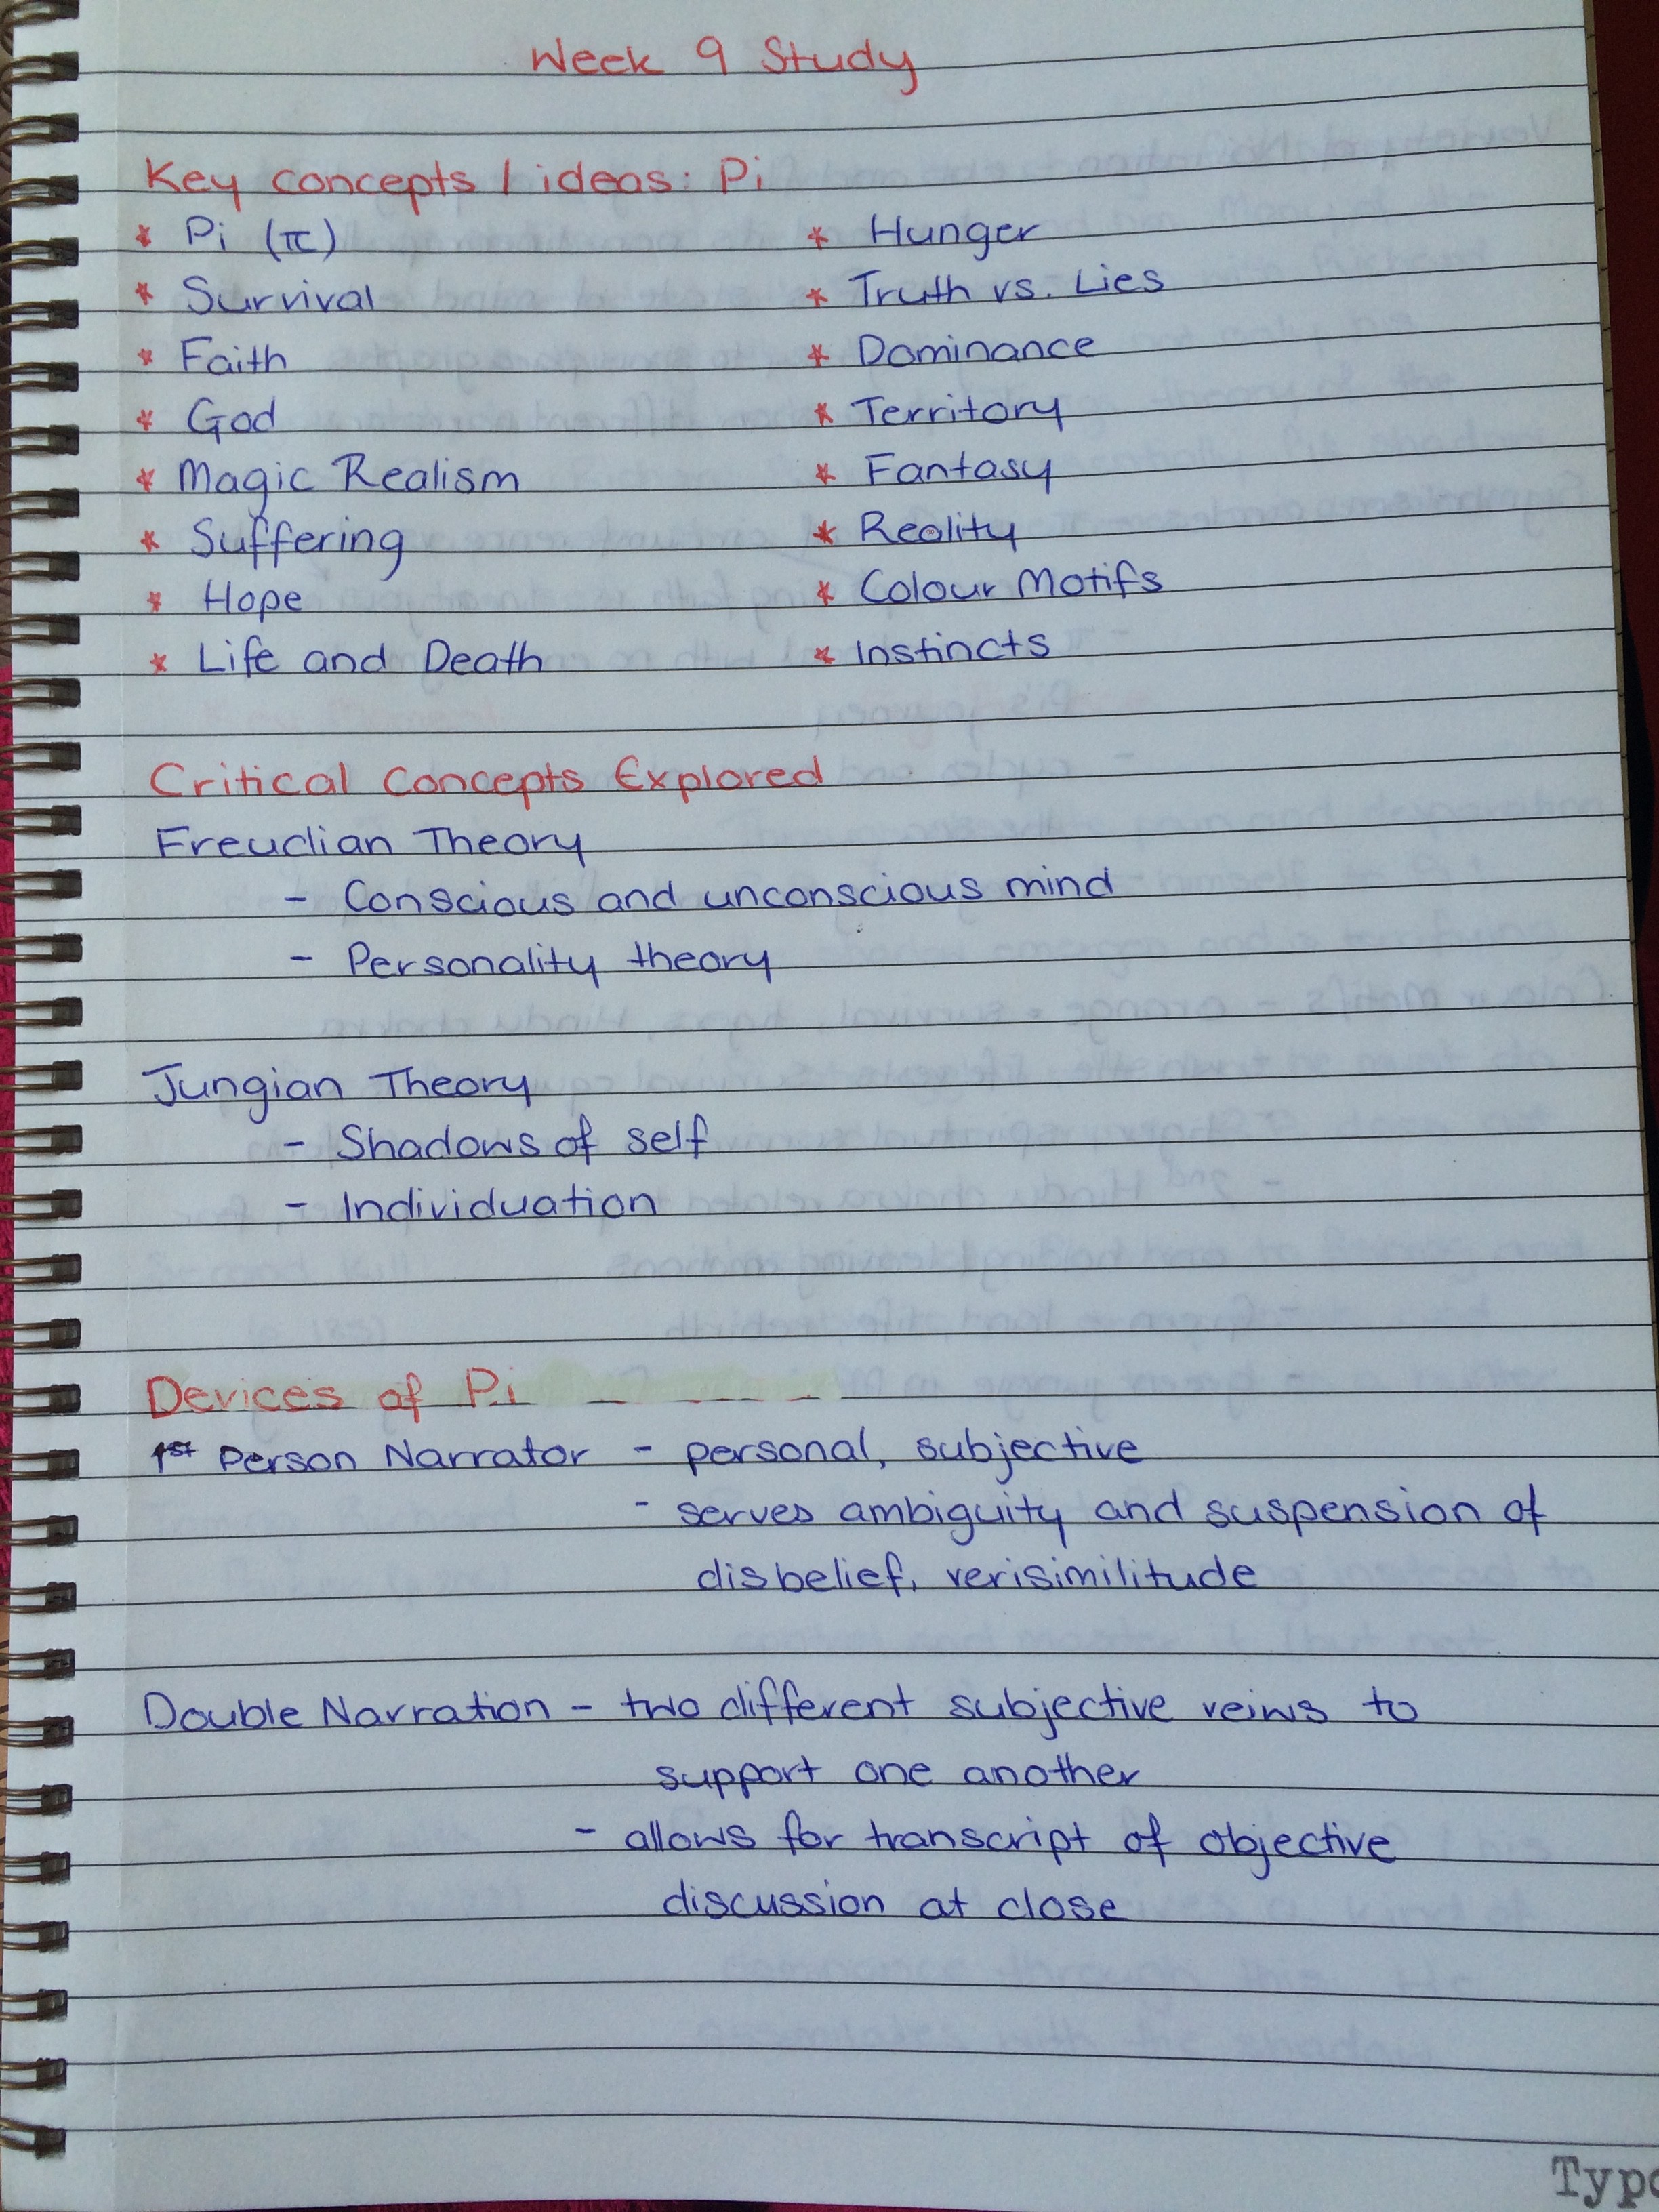 Week 9 Study
Key concepts / ideas: Pi
* Pi (π) * Hunger
* Survival * Truth vs. Lies
* Faith * Dominance
* God * Territory
* Magic Realism * Fantasy
* Suffering * Reality
* Hope * Colour Motifs
* Life and Death * Instincts
Critical Concepts Explored
Freudian Theory
- Conscious and unconscious mind
- Personality theory
Jungian Theory
- Shadows of self
- Individuation
Devices of Pi
1st Person Narrator - personal, subjective
- serves ambiguity and suspension of
disbelief, verisimilitude
Double Narration - two different subjective veiws to
support one another
- allows for transcript of objective
discussion at close
Typo